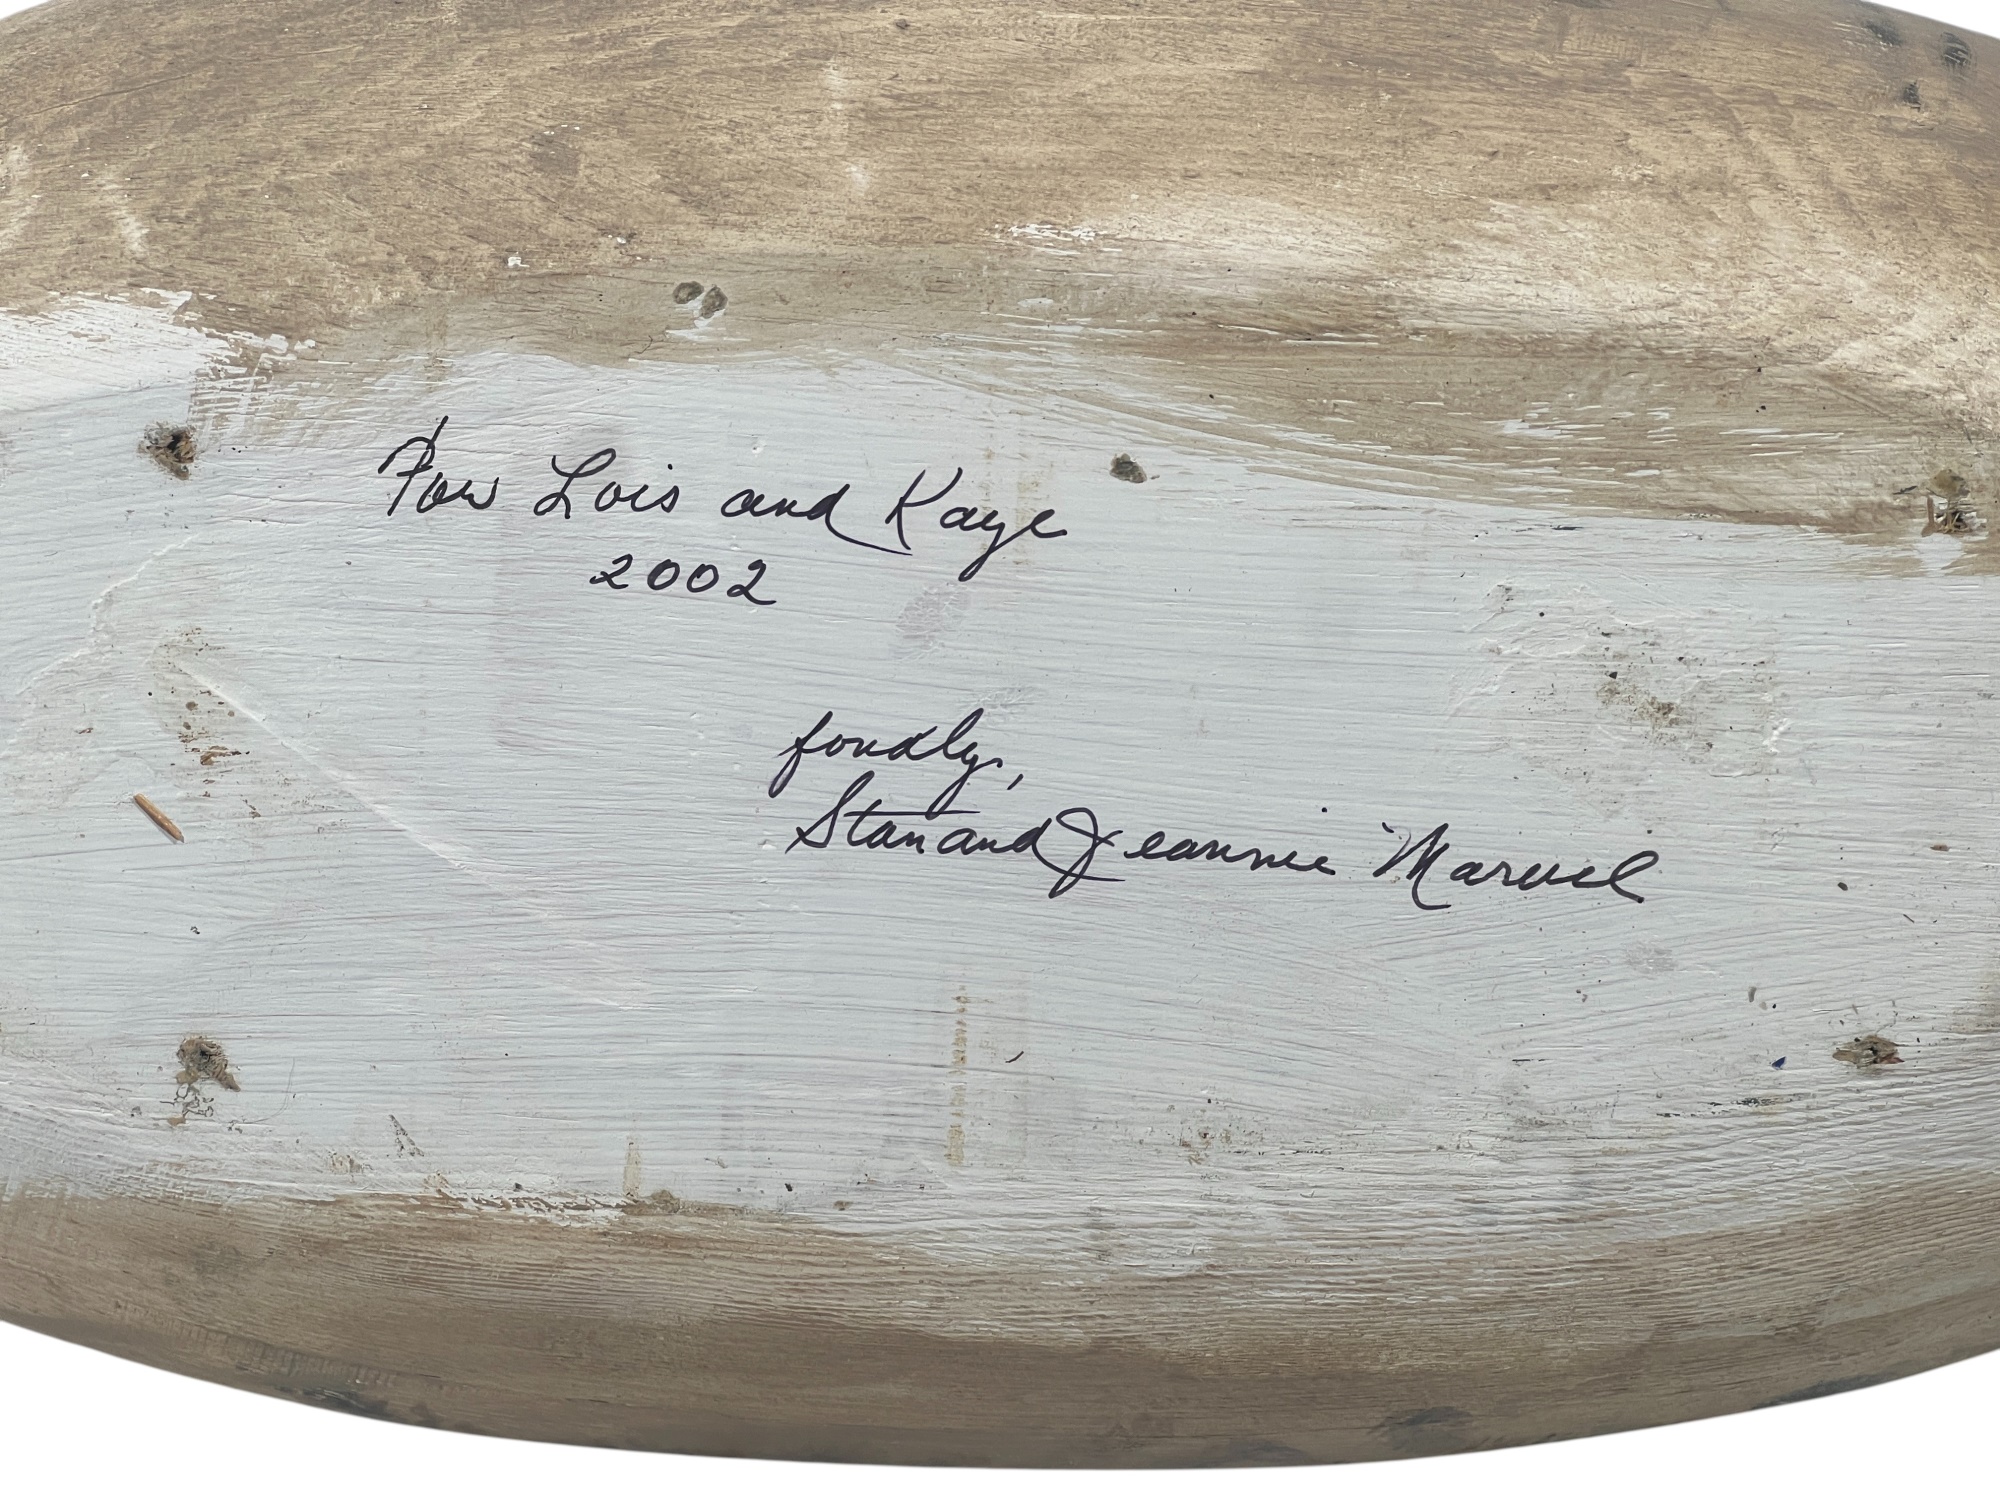 For Lois and Kaye
2002
fondly,
Stan and Jeannie Marvel